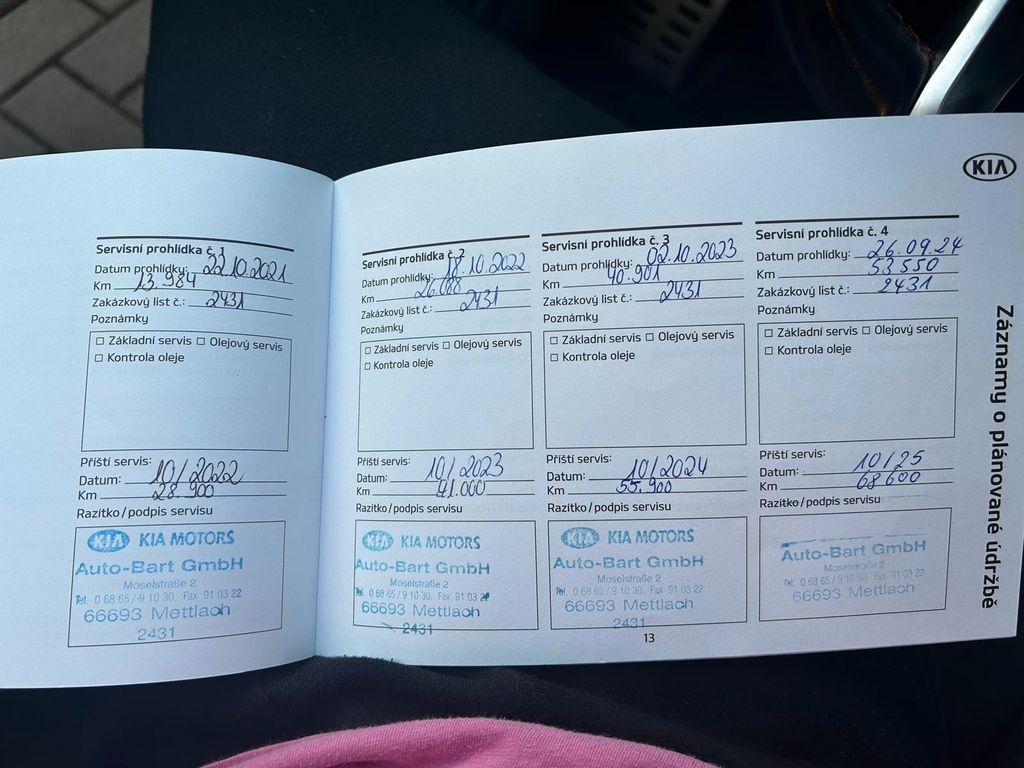 KIA
Záznamy o plánované údržbě
Servisní prohlídka č. 1
Datum prohlídky: 22.10.2021
Km 13.984
Zakázkový list č.: 2431
Poznámky
□ Základní servis □ Olejový servis
□ Kontrola oleje
Příští servis:
Datum: 10/2022
Km 28.900
Razítko/podpis servisu
KIA KIA MOTORS
Auto-Bart GmbH
Moselstraße 2
Tel. 0 68 65 / 9 10 30, Fax 91 03 22
66693 Mettlach
2431
Servisní prohlídka č. 2
Datum prohlídky: 18.10.2022
Km 26.088
Zakázkový list č.: 2431
Poznámky
□ Základní servis □ Olejový servis
□ Kontrola oleje
Příští servis:
Datum: 10/2023
Km 41.000
Razítko/podpis servisu
KIA KIA MOTORS
Auto-Bart GmbH
Moselstraße 2
Tel. 0 68 65 / 9 10 30, Fax 91 03 22
66693 Mettlach
2431
Servisní prohlídka č. 3
Datum prohlídky: 02.10.2023
Km 40.901
Zakázkový list č.: 2431
Poznámky
□ Základní servis □ Olejový servis
□ Kontrola oleje
Příští servis:
Datum: 10/2024
Km 55.900
Razítko/podpis servisu
KIA KIA MOTORS
Auto-Bart GmbH
Moselstraße 2
Tel. 0 68 65 / 9 10 30, Fax 91 03 22
66693 Mettlach
2431
Servisní prohlídka č. 4
Datum prohlídky: 26.09.24
Km 53550
Zakázkový list č.: 2431
Poznámky
□ Základní servis □ Olejový servis
□ Kontrola oleje
Příští servis:
Datum: 10/25
Km 68600
Razítko/podpis servisu
Auto-Bart GmbH
Moselstraße 2
Tel. 0 68 65 / 9 10 30, Fax 91 03 22
66693 Mettlach
13